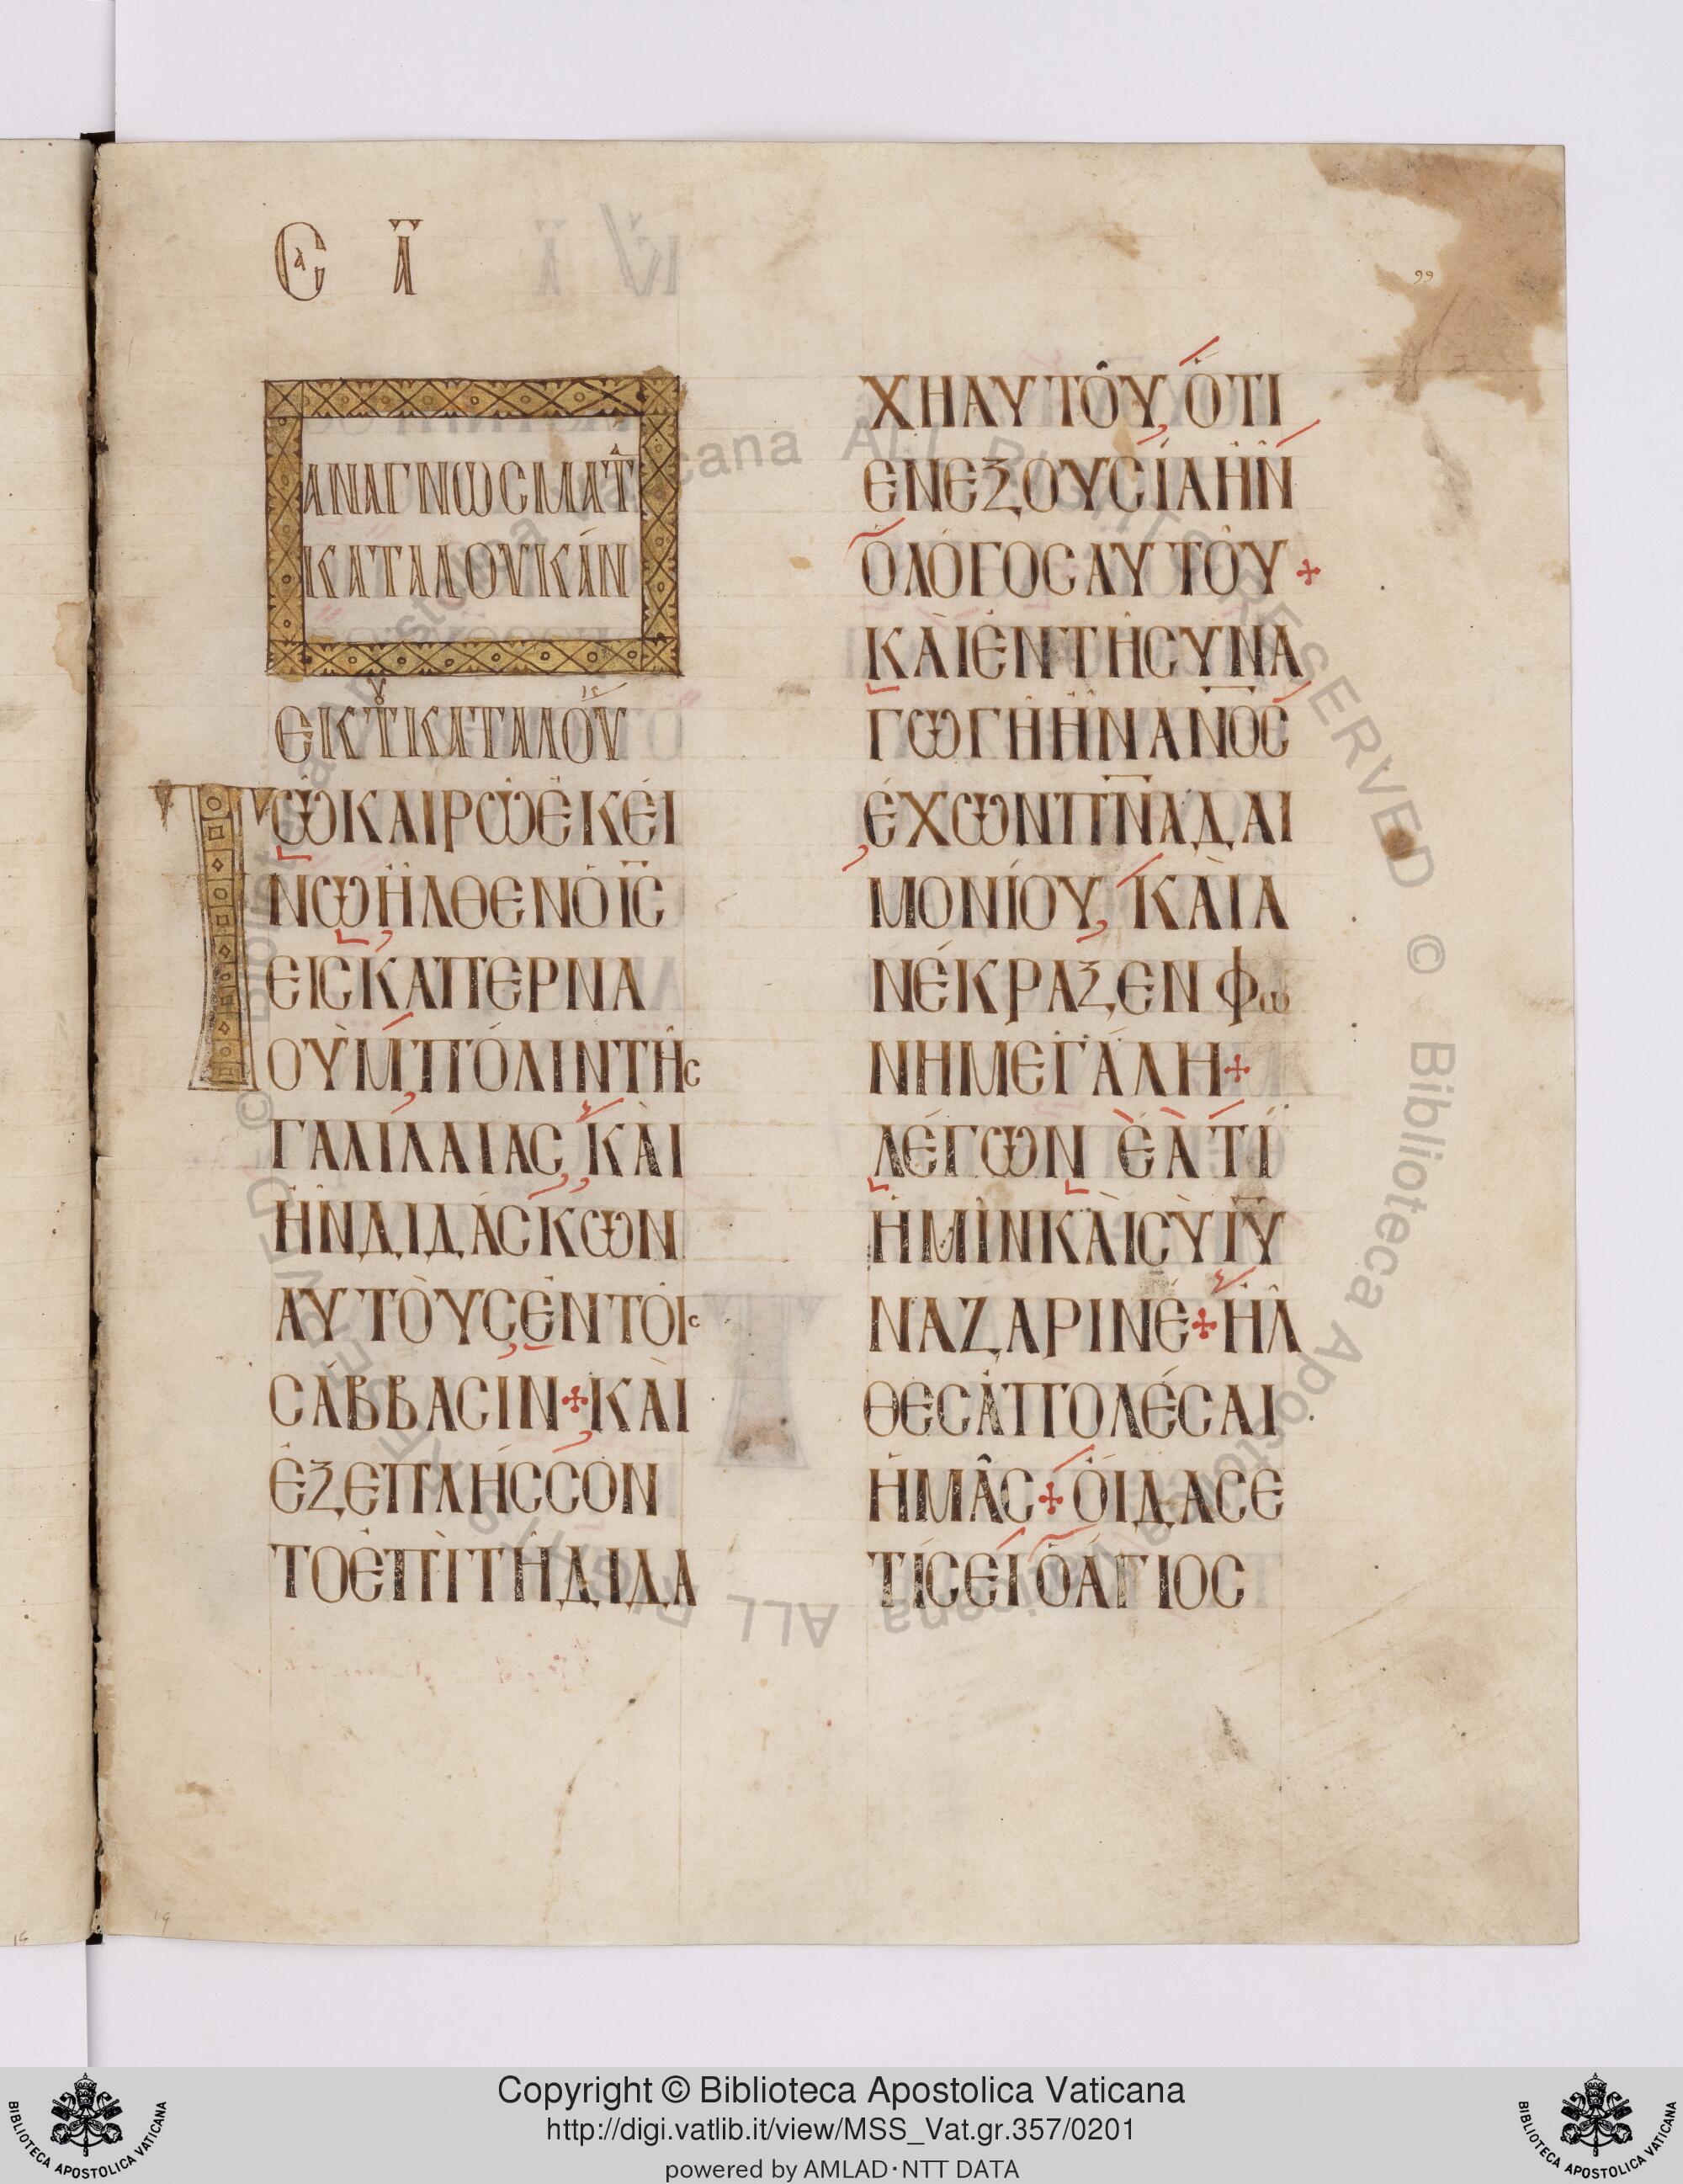 99
ΑΝΑΓΝΩCΜΑΤ
ΚΑΤΑΛΟΥΚΑΝ
ΕΚΤ̊ΚΑΤΑΛΟΥ
ΤῼΚΑΙΡῼΕΚΕΙ
ΝῼΗΛΘΕΝΟΙ̅C̅
ΕΙCΚΑΠΕΡΝΑ
ΟΥΜ,ΠΟΛΙΝΤΗC
ΓΑΛΙΛΑΙΑC,ΚΑΙ
ΗΝΔΙΔΑCΚΩΝ
ΑΥΤΟΥCΕΝΤΟΙC
CΑΒΒΑCΙΝ+ΚΑΙ
ΕΞΕΠΛΗCCΟΝ
ΤΟΕΠΙΤΗΔΙΔΑ
ΧΗΑΥΤΟΥ,ΟΤΙ
ΕΝΕΞΟΥCΙΑΗΝ
ΟΛΟΓΟCΑΥΤΟΥ+
ΚΑΙΕΝΤΗCΥΝΑ
ΓΩΓΗΗΝΑΝ̅Ο̅C̅
ΕΧΩΝΠ̅Ν̅Α̅ΔΑΙ
ΜΟΝΙΟΥ,ΚΑΙΑ
ΝΕΚΡΑΞΕΝΦΩ
ΝΗΜΕΓΑΛΗ+
ΛΕΓΩΝ ΕΑΤΙ
ΗΜΙΝΚΑΙCΥΙ̅Υ̅
ΝΑΖΑΡΙΝΕ+ΗΛ
ΘΕCΑΠΟΛΕCΑΙ
ΗΜΑC+ΟΙΔΑCΕ
ΤΙCΕΙΟΑΓΙΟC
Copyright © Biblioteca Apostolica Vaticana
http://digi.vatlib.it/view/MSS_Vat.gr.357/0201
powered by AMLAD·NTT DATA
BIBLIOTECA APOSTOLICA VATICANA
BIBLIOTECA APOSTOLICA VATICANA